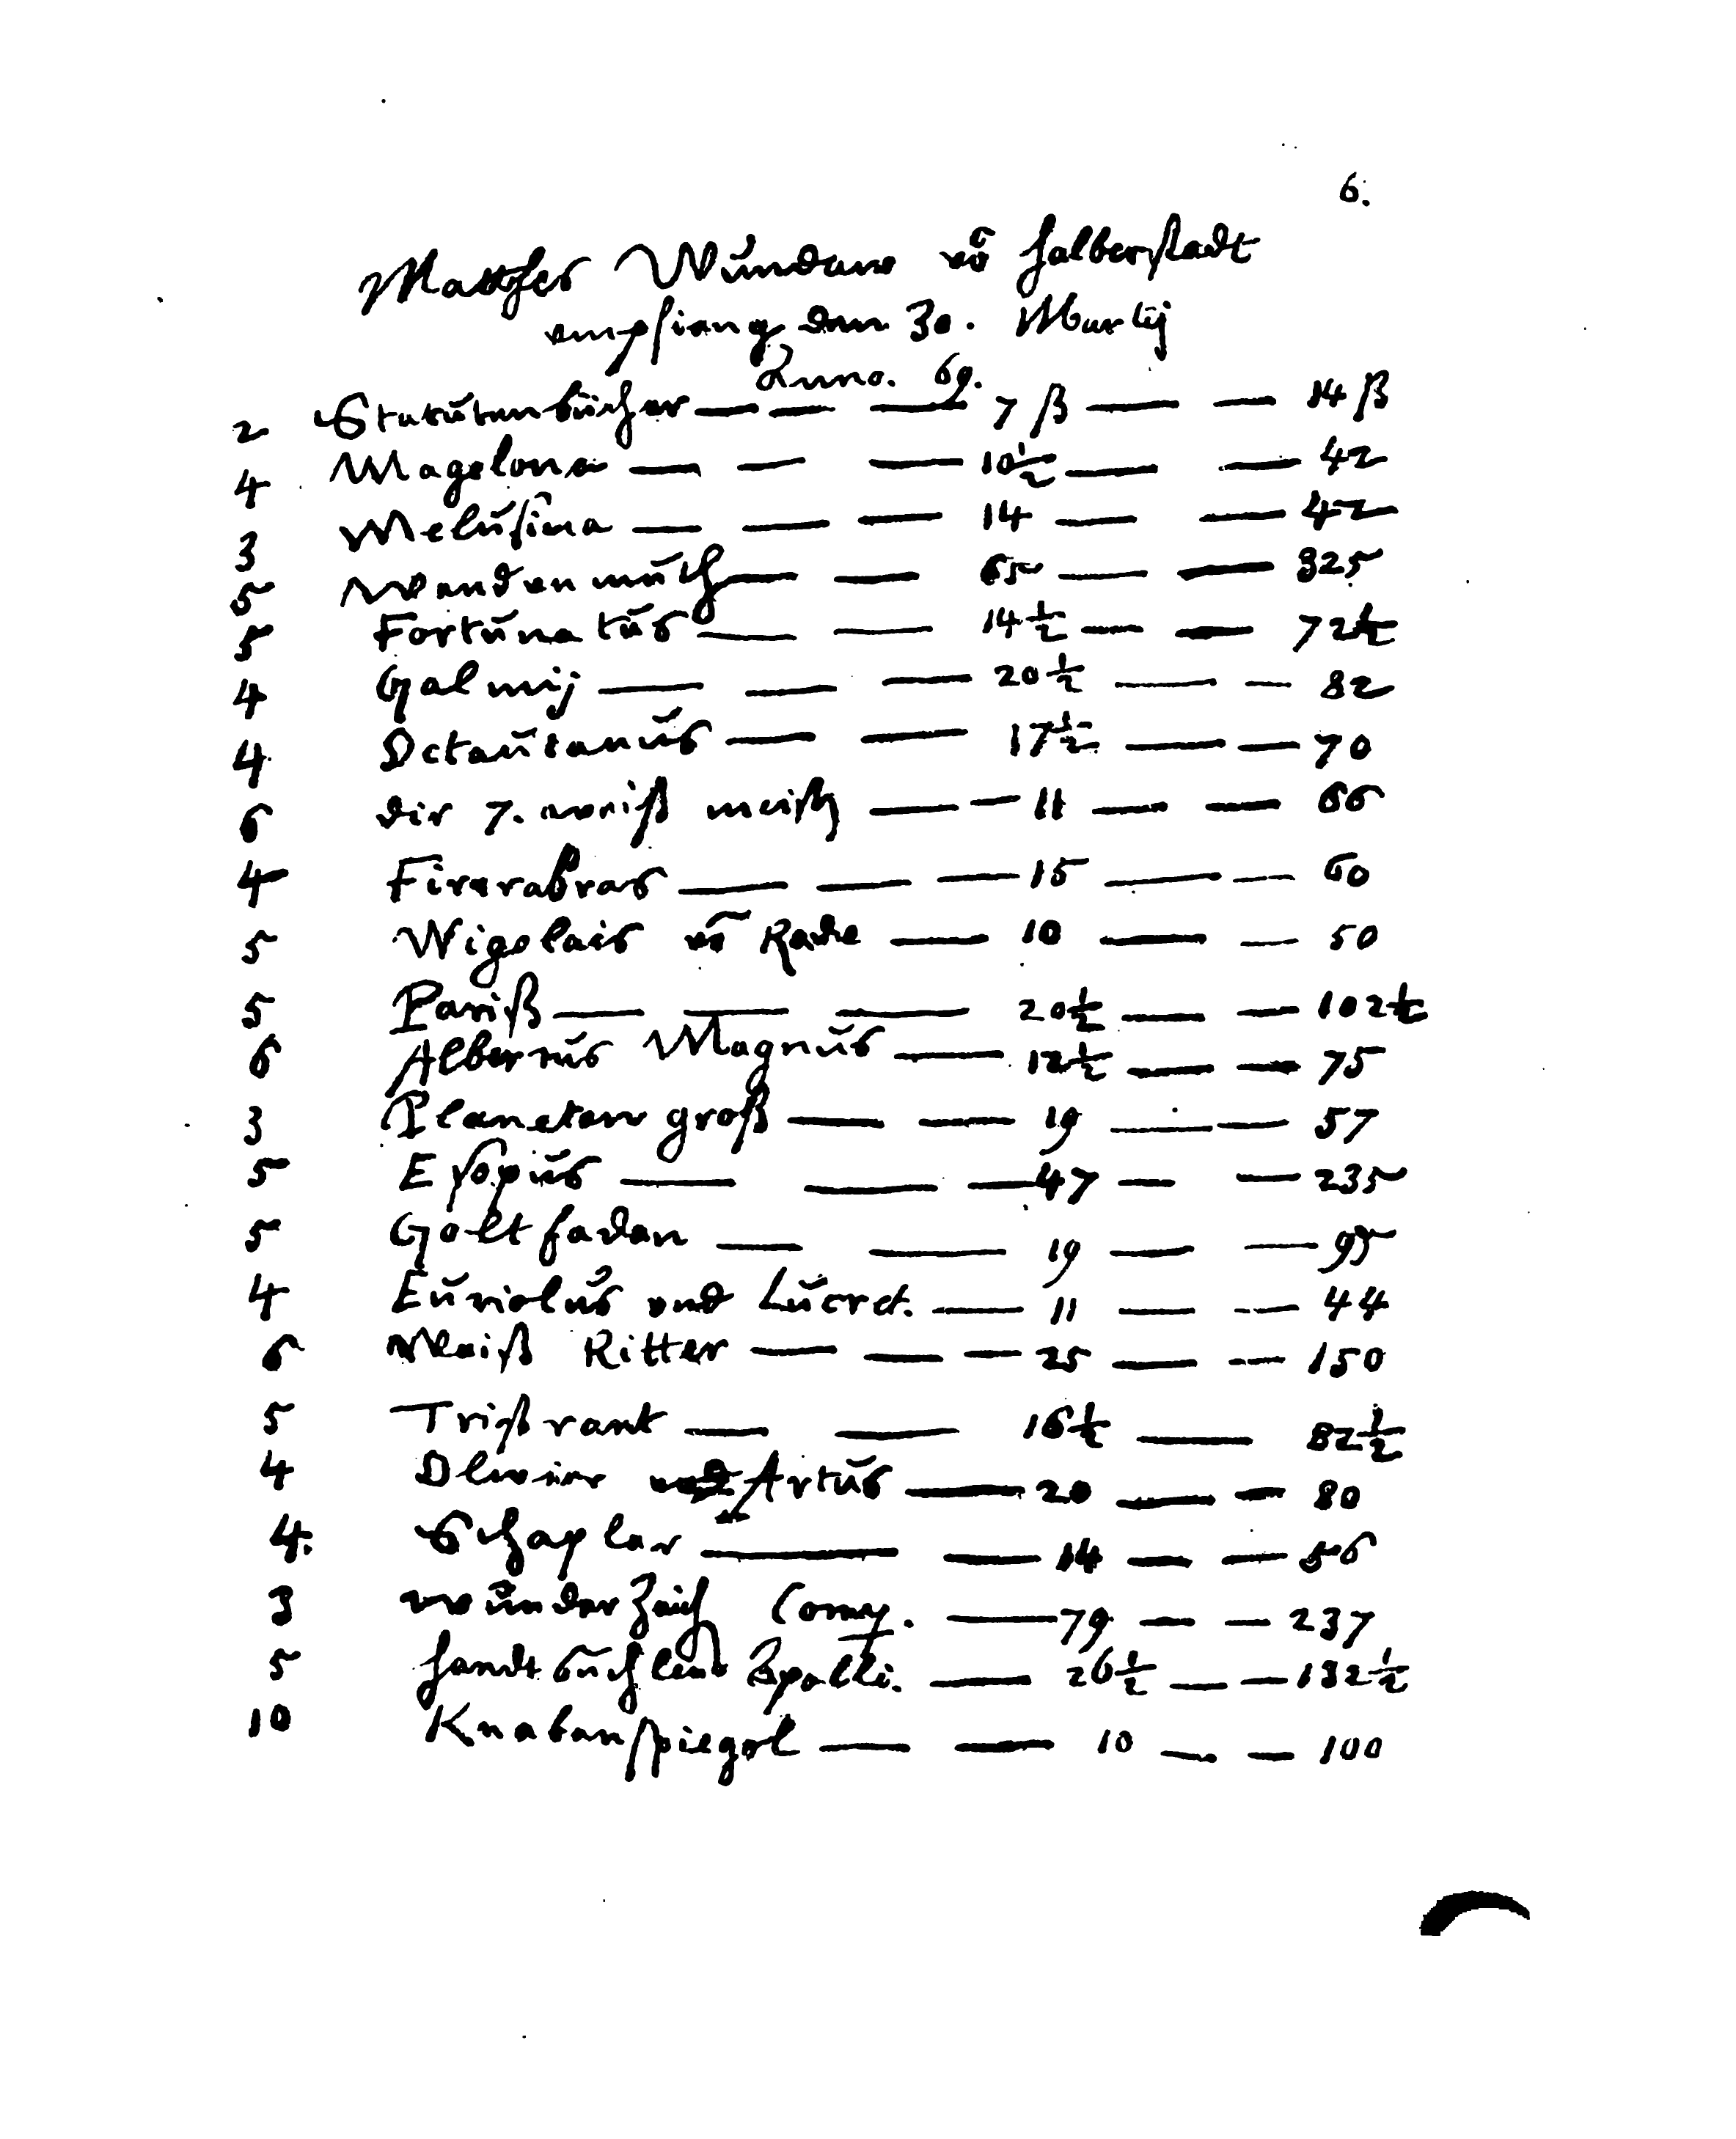 6.
Matthes Wundere vō Halberstadt
empfieng den 30. Martij
Anno. 69.
2 Statutenbücher — — — 7 ß — — 14 ß
4 Magelona — — — 10½ — — 42
3 Melusina — — — 14 — — 42
5 Wendenmuth — — 65 — — 325
5 Fortunatus — — 14½ — — 72½
4 Galmij — — — 20½ — — 82
4 Octauianus — — 17½ — — 70
6 die 7. weiß meist — — 11 — — 66
4 Fierrabras — — — 15 — — 60
5 Wigoleis vō Rade — 10 — — 50
5 Pariß — — — 20½ — — 102½
6 Albertus Magnus — 12½ — — 75
3 Planeten groß — — 19 — — 57
5 Esopus — — — 47 — — 235
5 Goltfaden — — 19 — — 95
4 Euriolus vnd Lucret. — 11 — — 44
6 Weiß Ritter — — — 25 — — 150
5 Tristrant — — 16½ — 82½
4 Oliuier vnd Artus — 20 — — 80
4. Schapler — — 14 — — 56
3 wunderzeich Comp. — 79 — — 237
5 Handtbuchlein Apolli. — 26½ — — 132½
10 Knabenspiegel — — 10 — — 100